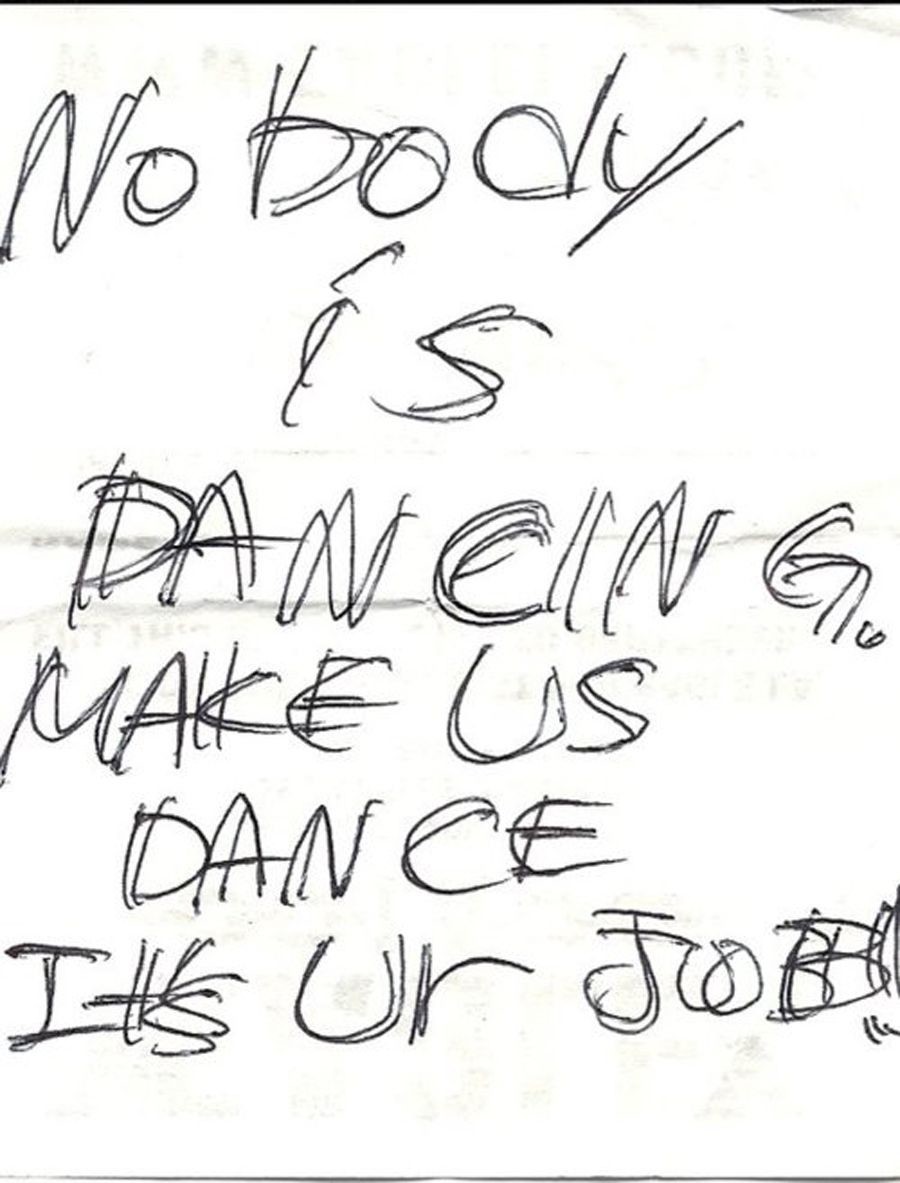 Nobody
is
DANCING.
MAKE US
DANCE
It's Ur JoB!!